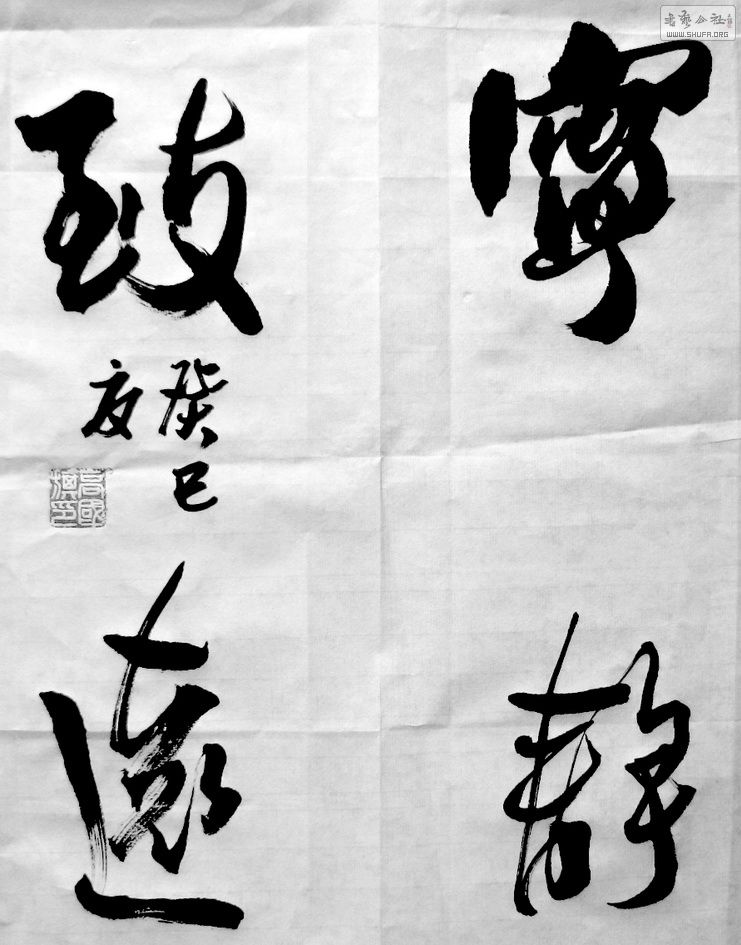 寧靜
致遠
癸巳
夏
高國旗印
書藝公社
WWW.SHUFA.ORG